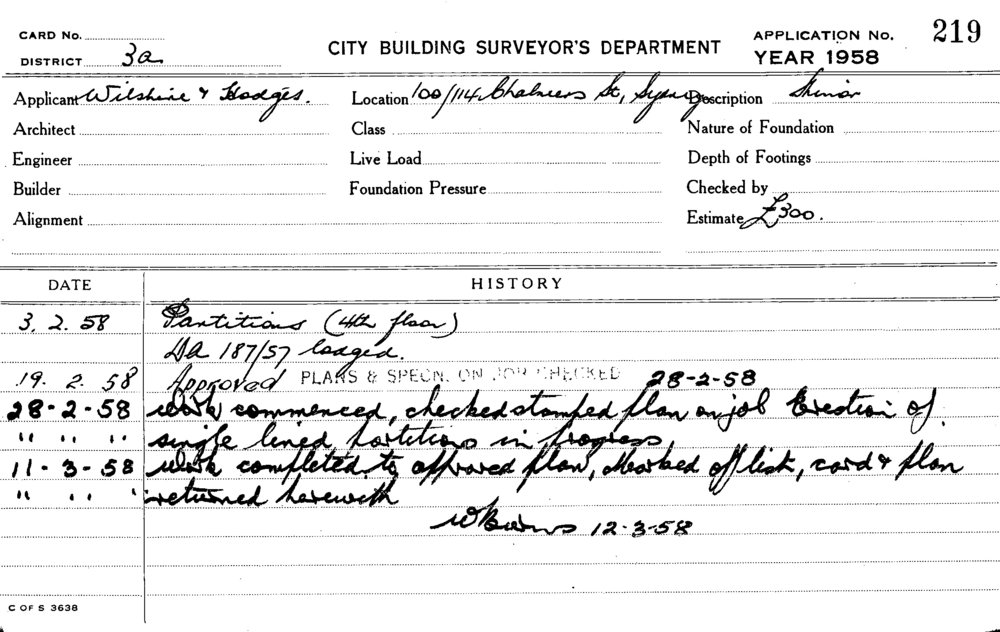 CARD No.
DISTRICT 3a
CITY BUILDING SURVEYOR'S DEPARTMENT
APPLICATION No. 219
YEAR 1958
Applicant Wilshire & Hodges. Location 100/114 Chalmers St, Sydney Description Minor
Architect Class Nature of Foundation
Engineer Live Load Depth of Footings
Builder Foundation Pressure Checked by
Alignment Estimate £300.
DATE HISTORY
3. 2. 58 Partitions (4th floor)
DA 187/57 lodged.
19. 2. 58 Approved PLANS & SPECN. ON JOB CHECKED 28-2-58
28-2-58 Work commenced, checked stamped plan on job Erection of
" " " single lined partitions in progress,
11-3-58 Work completed to approved plan, Marked off list, card & plan
" " " returned herewith
WBurns 12-3-58
C OF S 3638